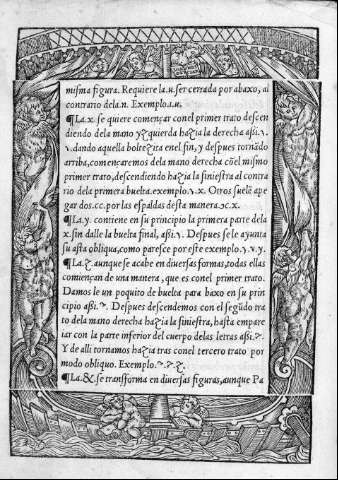 miſma figura. Requiere la.u.ſer cerrada por abaxo, al
contrario dela.n. Exemplo.ı.u.
¶La.x.ſe quiere començar conel primer trato deſcen
diendo dela mano yzquierda hazia la derecha aßi.ı.
.dando aquella boltezita enel fin, y deſpues tornãdo
arriba, començaremos dela mano derecha cõel miſmo
primer trato, deſcendiendo hazia la ſinieſtra al contra
rio dela primera buelta.exemplo.ı.x. Otros ſuelẽ ape
gar dos.cc.por las eſpaldas deſta manera.ɔc.x.
¶La.y. contiene en ſu principio la primera parte dela
x.ſin dalle la buelta final, aßi.ı. Deſpues ſe le ayunta
ſu aſta obliqua, como pareſce por eſte exemplo.ı.v.y.
¶La.z.aunque ſe acabe en diuerſas formas, todas ellas
comiençan de una manera, que es conel primer trato.
Damos le un poquito de buelta para baxo en ſu prin
cipio aßi. Deſpues deſcendemos con el ſegũdo tra
to dela mano derecha hazia la ſinieſtra, haſta empare
jar con la parte inferior del cuerpo delas letras aßi.
Y de alli tornamos hazia tras conel tercero trato por
modo obliquo. Exemplo.z.
¶La.&.ſe transforma en diuerſas figuras, aunque Pa